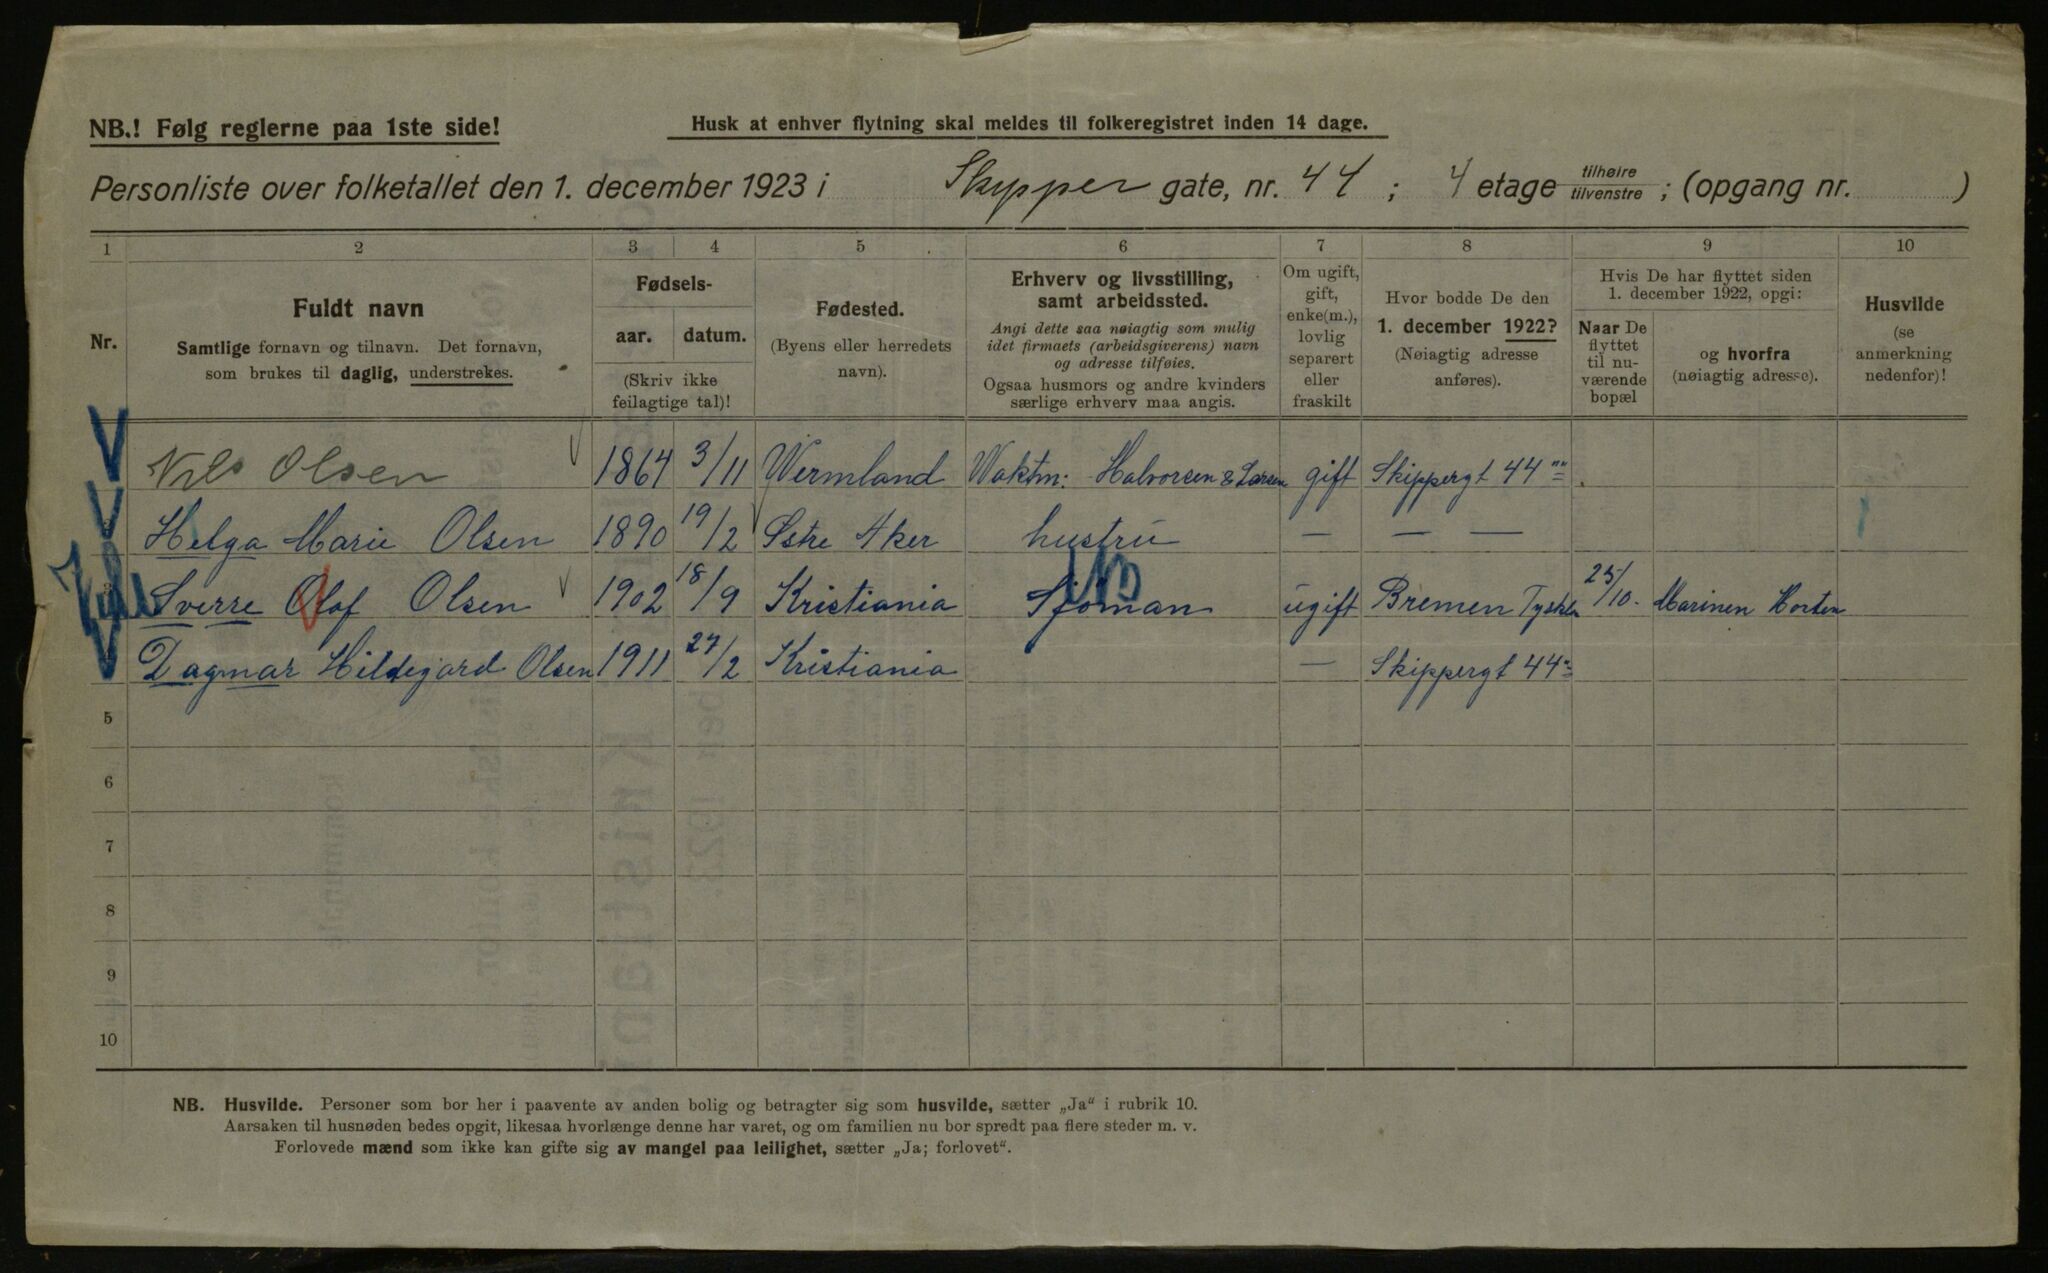 NB.! Følg reglerne paa 1ste side!
Husk at enhver flytning skal meldes til folkeregistret inden 14 dage.
Personliste over folketallet den 1. december 1923 i Skipper gate, nr. 44 ; 4 etage tilhøire tilvenstre ; (opgang nr. )
1 2 3 4 5 6 7 8 9 10
Nr.
Fuldt navn
Samtlige fornavn og tilnavn. Det fornavn,
som brukes til daglig, understrekes.
Fødsels-
aar. datum.
(Skriv ikke
feilagtige tal)!
Fødested.
(Byens eller herredets
navn).
Erhverv og livsstilling,
samt arbeidssted.
Angi dette saa nøiagtig som mulig
idet firmaets (arbeidsgiverens) navn
og adresse tilføies.
Ogsaa husmors og andre kvinders
særlige erhverv maa angis.
Om ugift,
gift,
enke(m.),
lovlig
separert
eller
fraskilt
Hvor bodde De den
1. december 1922?
(Nøiagtig adresse
anføres).
Hvis De har flyttet siden
1. december 1922, opgi:
Naar De
flyttet
til nu-
værende
bopæl
og hvorfra
(nøiagtig adresse).
Husvilde
(se
anmerkning
nedenfor)!
Nils Olsen 1864 3/11 Wermland Waktm: Halvorsen & Larsen gift Skippergt 44
Helga Marie Olsen 1890 19/2 Østre Aker hustru — — —
Sverre Olaf Olsen 1902 18/9 Kristiania Sjöman ugift Bremen 25/10. Marinen Horten
Dagmar Hildegard Olsen 1911 27/2 Kristiania — Skippergt 44
5
6
7
8
9
10
NB. Husvilde. Personer som bor her i paavente av anden bolig og betragter sig som husvilde, sætter „Ja“ i rubrik 10.
Aarsaken til husnøden bedes opgit, likesaa hvorlænge denne har varet, og om familien nu bor spredt paa flere steder m. v.
Forlovede mænd som ikke kan gifte sig av mangel paa leilighet, sætter „Ja; forlovet“.